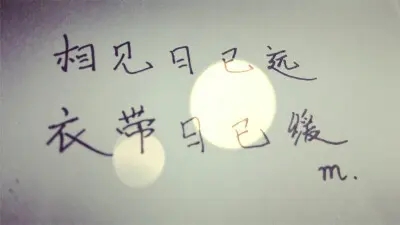 相见日已远
衣带日已缓
m.